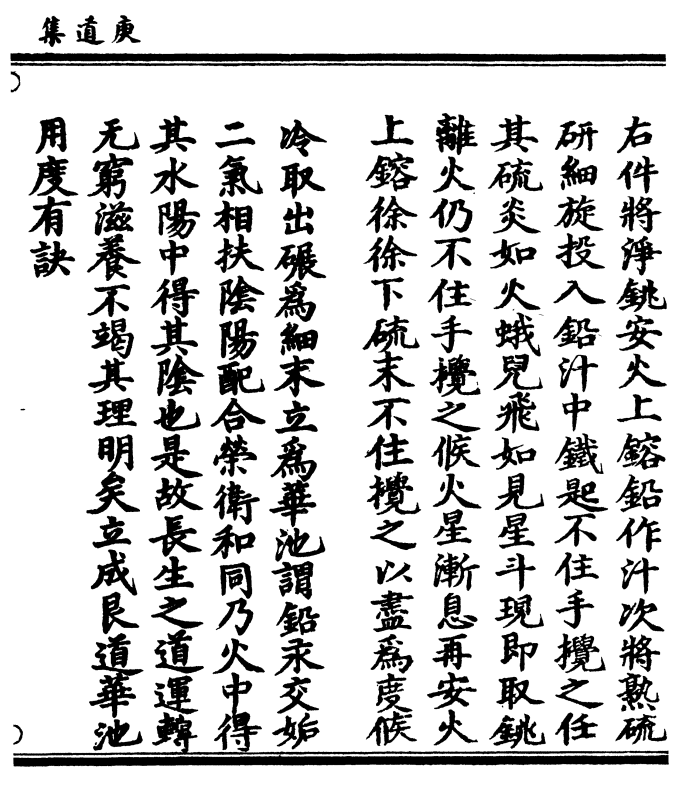 庚道集
右件將淨銚安火上鎔鉛作汁次將熟硫
研細旋投入鉛汁中鐵匙不住手攪之任
其硫炎如火蛾兒飛如見星斗現即取銚
離火仍不住手攪之候火星漸息再安火
上鎔徐徐下硫末不住攪之以盡為度候
冷取出碾為細末立為華池謂鉛汞交姤
二氣相扶陰陽配合榮衛和同乃火中得
其水陽中得其陰也是故長生之道運轉
无窮滋養不竭其理明矣立成艮道華池
用度有訣